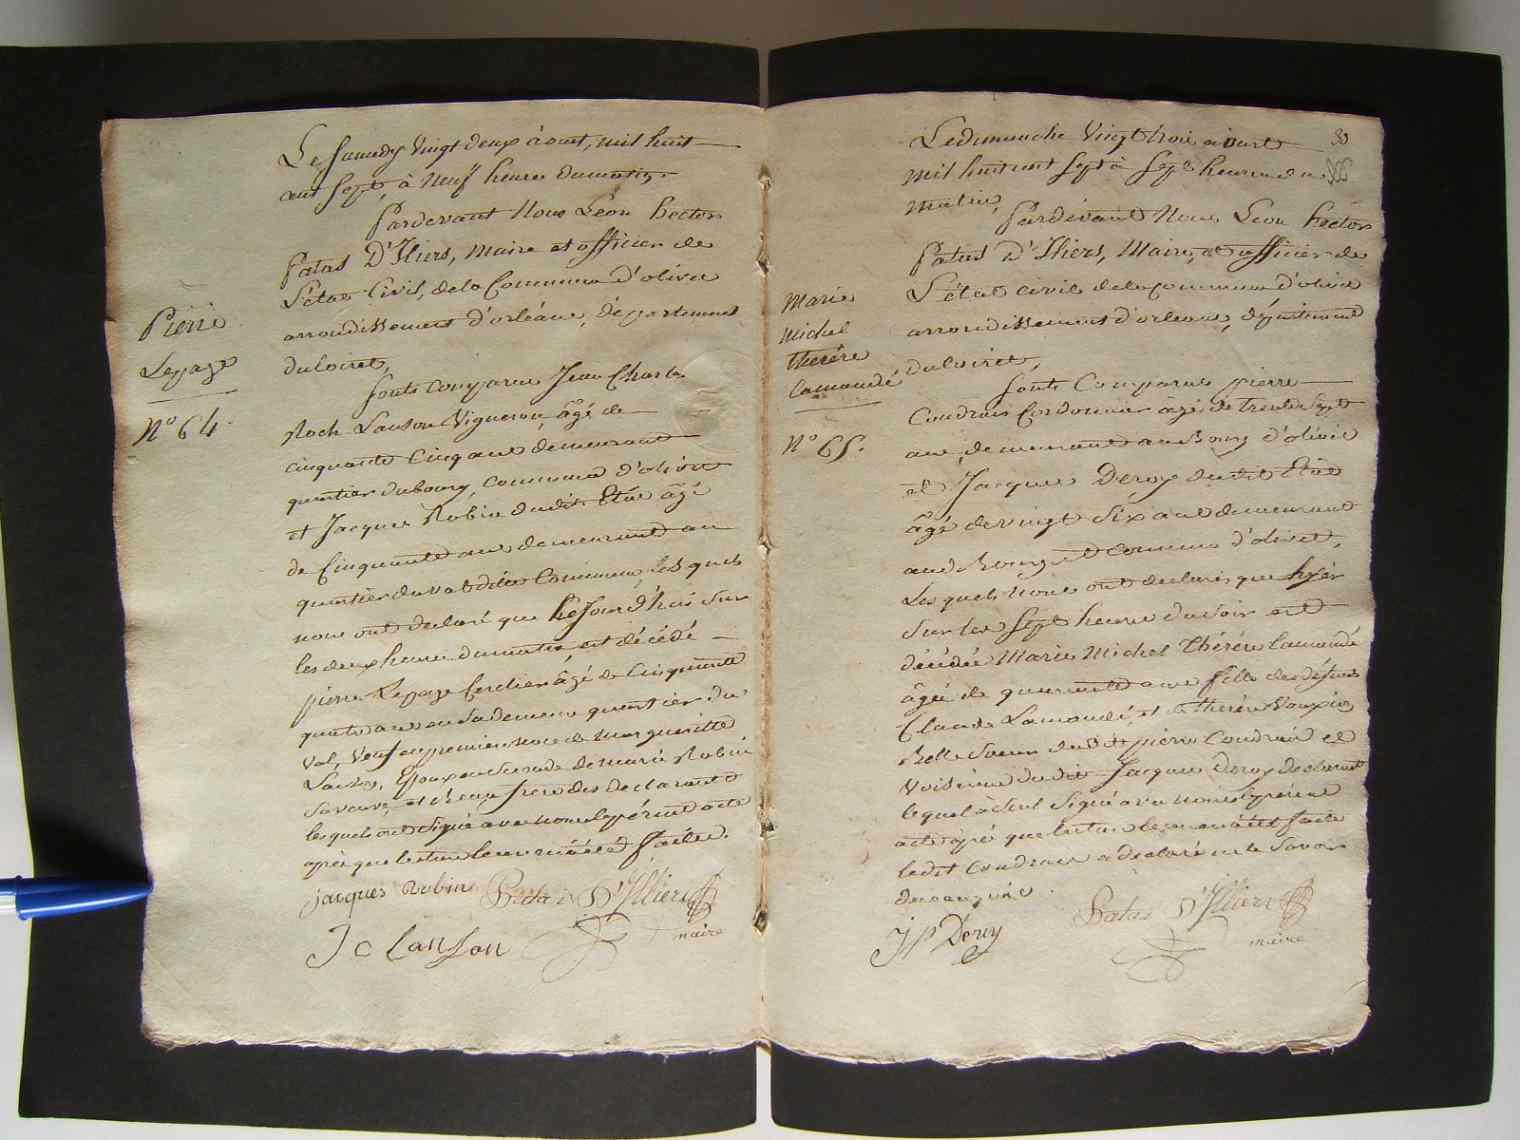 Le Samedy Vingt deux àout, mil huit
cent Sept, à Neuf heure du matin.
Pardevant Nous Leon hector
Patas D'Illiers, Maire et officier de
L'état Civil, de la Commune d'olivet
arrondissement d'orléans, département
du loiret,
Pierre
Lepage
N° 64.
Sont Comparus Jean Charles
Roch Lanson Vigneron âgé de
cinquante Cinq ans demeurant
quartier du bourg, commune d'olivet
et Jacques Robin dudit Etat âgé
de Cinquante ans demeurant au
quartier du val dite Commune, Les quels
nous ont declaré que Ce Jourd'hui Sur
les deux heure du matin, est décédé
pierre Lepage Cerclier âgé de Cinquante
quatre ans en Sa demeure quartier du
Val, Veuf en premier noce de Marguerite
Lanson, Epoux en Seconde de marie Robin
Sa veuve, et Beau frere des declarants
lesquels ont Signé avec nous le présent acte
après que lecture leur en a été faite.
jacques robin Patas D'Illiers
maire
J C lanson
Le dimanche Vingt trois aoust 80
mil huit cent Sept à Sept heure du
matin,
Pardevant Nous Leon hector
Patas D'Illiers, Maire, et officier de
L'état civil de la commune d'olivet
arrondissement d'orleans, département
du loiret,
Marie
Michel
thérére
Lamandé
N° 65.
Sont Comparus pierre
Coudrais Cordonnier âgé de trente Sept
ans, demeurant au Bourg d'olivet
et Jacques Deroy dudit Etat
âgé de vingt Six ans demeurant
aud. Bourg et commune d'olivet,
Les quels nous ont declaré que hyer
Sur les Sept heure du Soir est
décédée Marie Michel thérére Lamandé
âgée de quarante ans fille des défunts
Claude Lamandé, et de therére
Belle Soeur dudit pierre Coudrais et
Voisinne du dit Jacques Deroy declarant
lequel à Seul Signé avec nous le présent
acte après que lecture leur en a été faite
ledit Coudrais a declaré ne le Savoir
de ce enquis.
J P Deroy Patas D'Illiers
maire